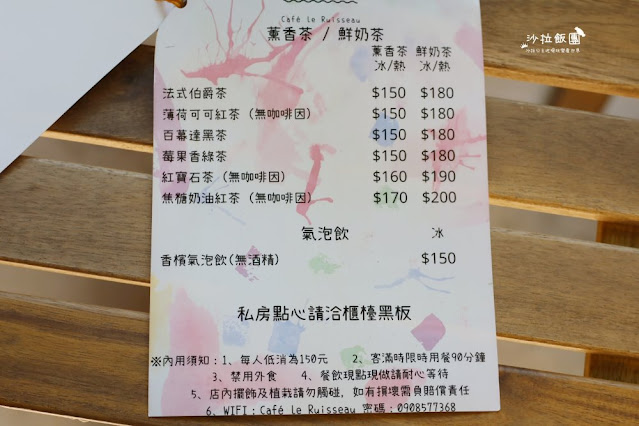 沙拉飯團
Café Le Ruisseau
薰香茶 / 鮮奶茶
薰香茶 鮮奶茶
冰/熱 冰/熱
法式伯爵茶 $150 $180
薄荷可可紅茶 (無咖啡因) $150 $180
百慕達黑茶 $150 $180
莓果香綠茶 $150 $180
紅寶石茶 (無咖啡因) $160 $190
焦糖奶油紅茶 (無咖啡因) $170 $200
氣泡飲 冰
香檳氣泡飲(無酒精) $150
私房點心請洽櫃檯黑板
※內用須知：1、每人低消為150元 2、客滿時限時用餐90分鐘
3、禁用外食 4、餐飲現點現做請耐心等待
5、店內擺飾及植栽請勿觸碰，如有損壞需負賠償責任
6、WIFI：Café Le Ruisseau 密碼：0908577368